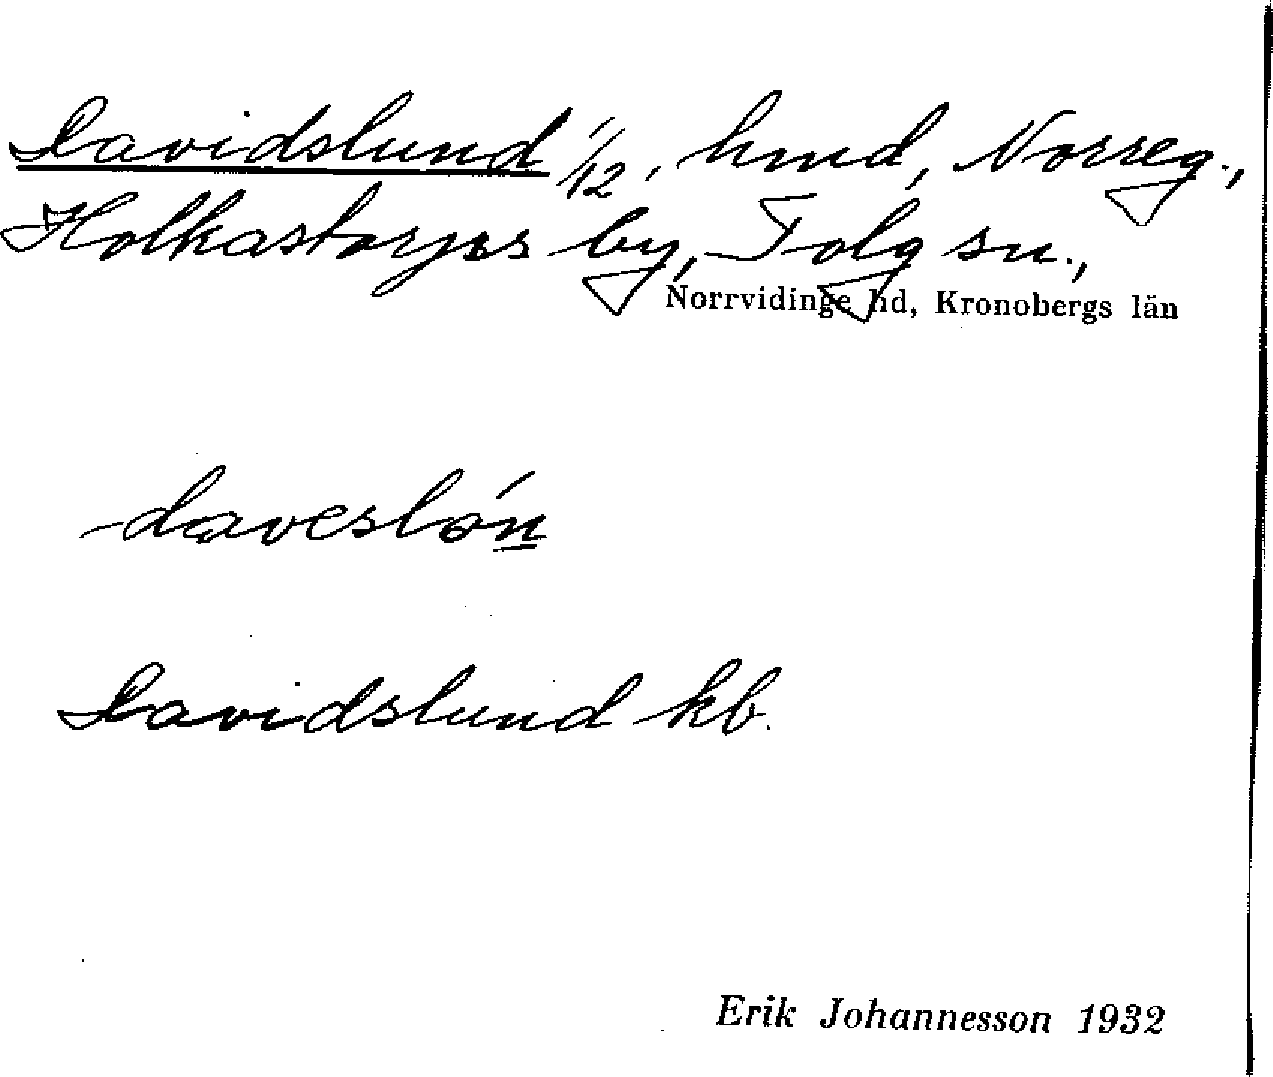 Davidslund 1/12, hmd, Norreg.,
Holkastorps by, Tolg sn.,
Norrvidinge hd, Kronobergs län
davẹslón
Davidslund kb.
Erik Johannesson 1932